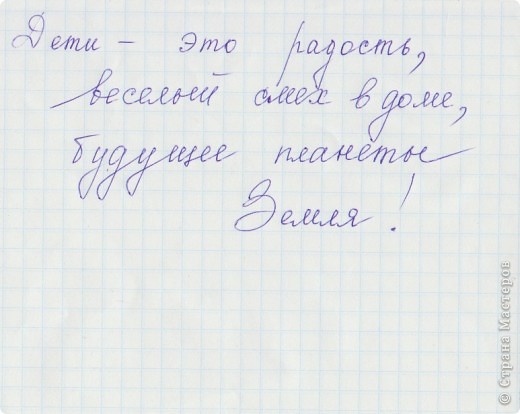 Дети – это радость,
веселый смех в доме,
будущее планеты
Земля!
© Страна Мастеров